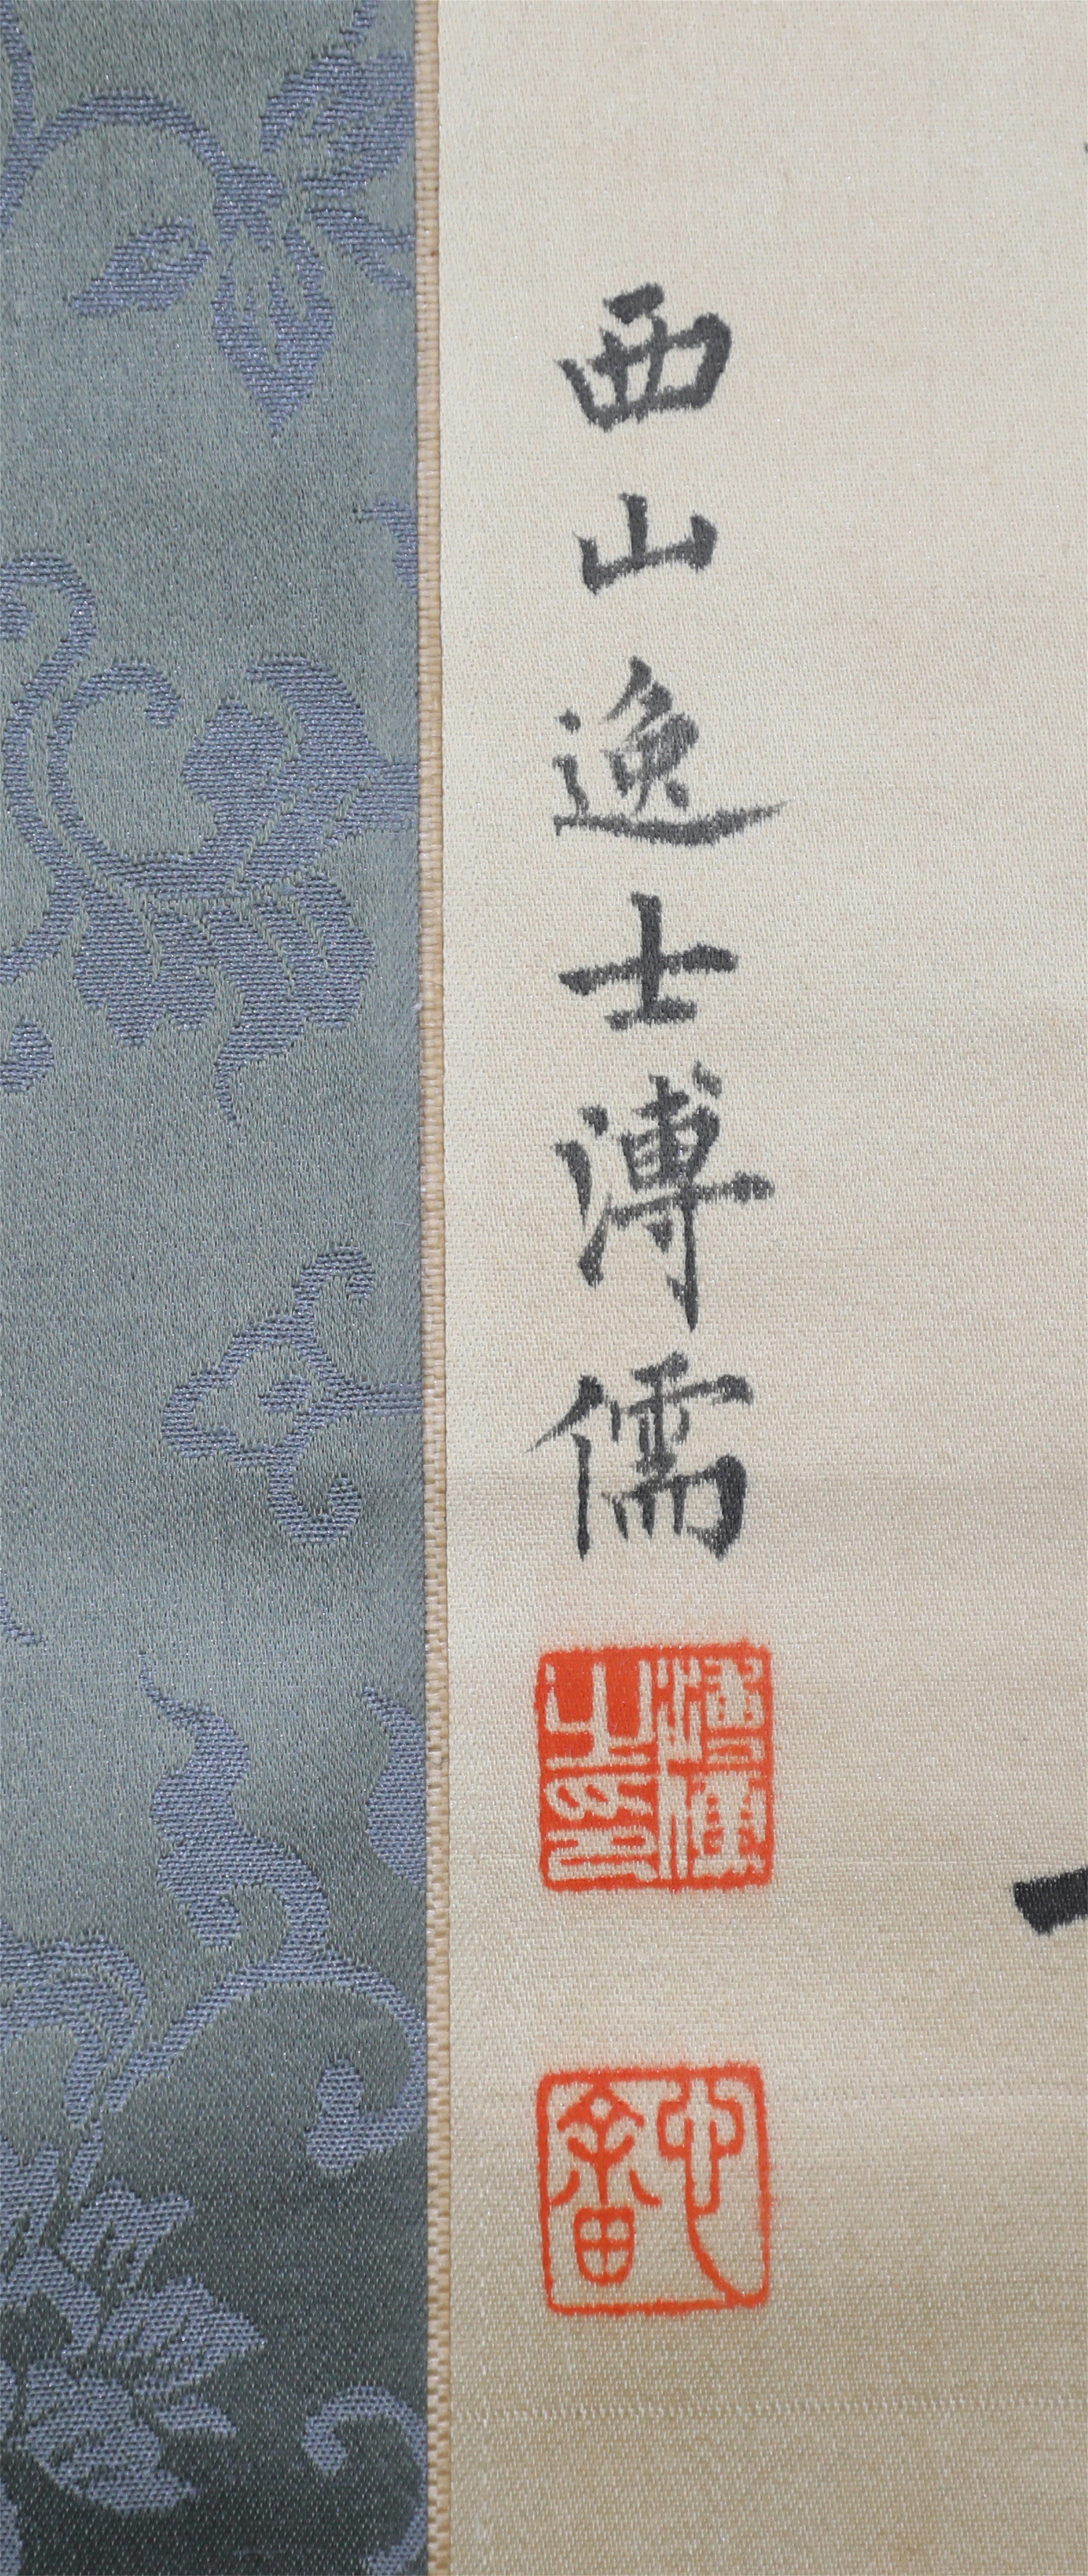 西山逸士溥儒
溥儒之印
心畬